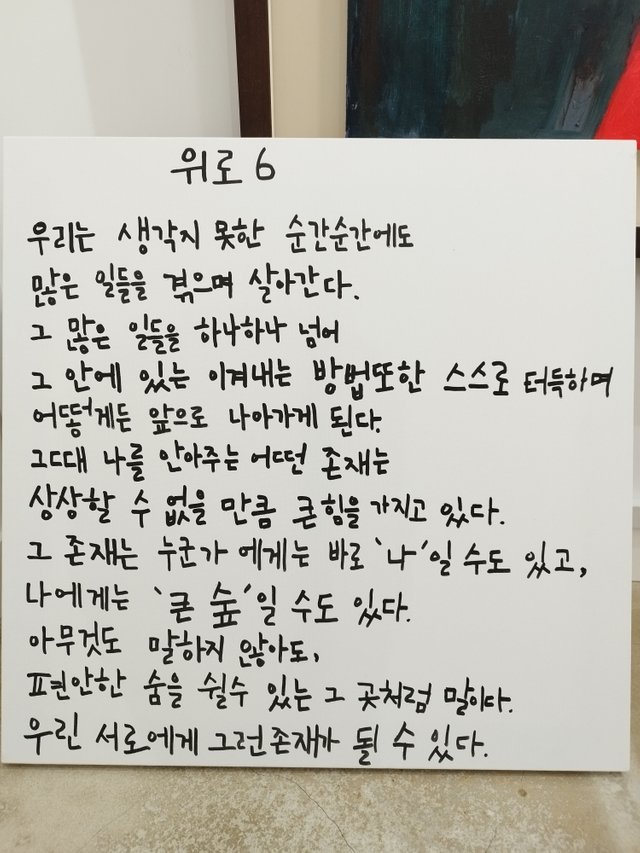 위로 6
우리는 생각지 못한 순간순간에도
많은 일들을 겪으며 살아간다.
그 많은 일들을 하나하나 넘어
그 안에 있는 이겨내는 방법또한 스스로 터득하며
어떻게든 앞으로 나아가게 된다.
그때 나를 안아주는 어떤 존재는
상상할 수 없을 만큼 큰 힘을 가지고 있다.
그 존재는 누군가 에게는 바로 '나'일 수도 있고,
나에게는 '큰 숲'일 수도 있다.
아무것도 말하지 않아도,
편안한 숨을 쉴수 있는 그 곳처럼 말이다.
우린 서로에게 그런존재가 될 수 있다.